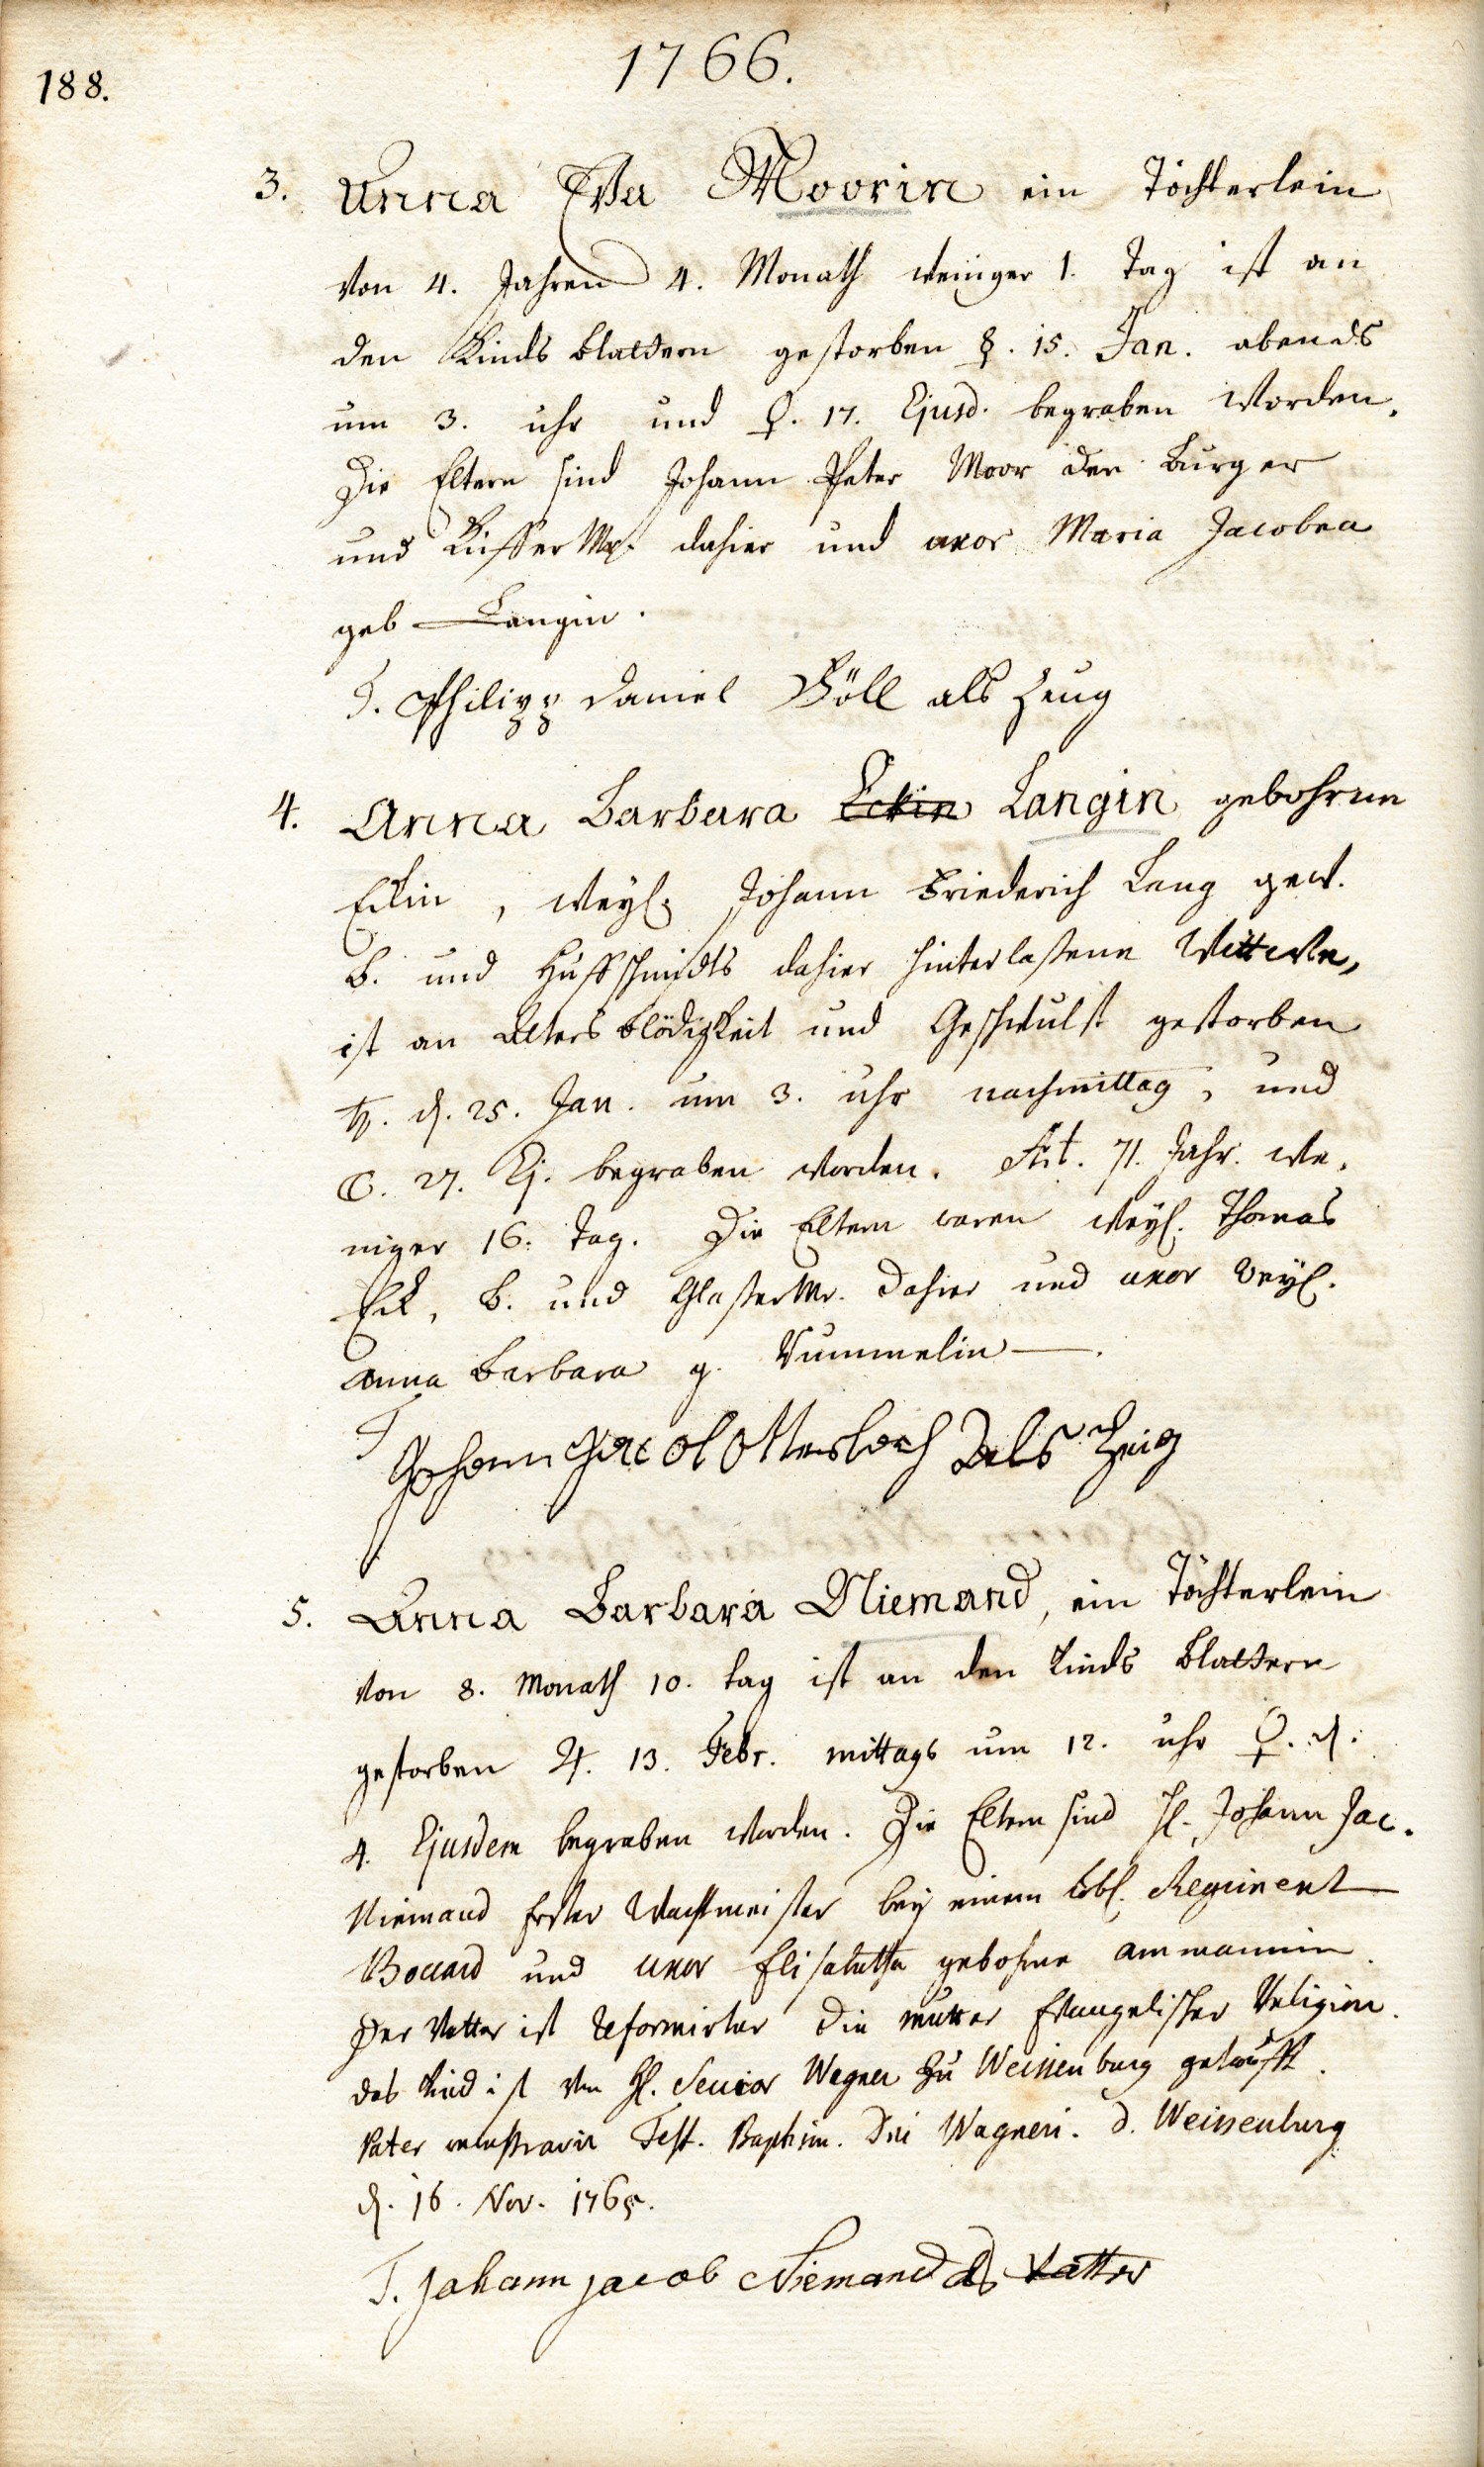 1766.
188.
3. Anna Eva Moorin ein Töchterlein
von 4. Jahren 4. Monath weniger 1. Tag ist an
den Kinds blattern gestorben ☿. 15. Jan. abends
um 3. uhr und ♀. 17. Ejusd. begraben worden.
Die Eltern sind Johann Peter Moor der burger
und KüfferMr. dahier und uxor Maria Jacobea
geb Langin.
T. Philipp Daniel Böll als Zeug
4. Anna Barbara Eckin Langin gebohrne
Eckin, weyl. Johann Friederich Lang gew.
b. und Huffschmidts dahier hinterlaßene Wittwe,
ist an Alters blödigkeit und Geschwulst gestorben
♄. d. 25. Jan. um 3. uhr nachmittag, und
☾. 27. Ej. begraben worden. Aet. 71. Jahr. we,
niger 16. Tag. Die Eltern waren weyl. Thomas
Eck, b. und GlaserMr. dahier und uxor weyl.
Anna Barbara g. Rummelin.
T Johann Jacob Otterbach als Zeug
5. Anna Barbara Niemand, ein Töchterlein
von 8. Monath 10. tag ist an den Kinds blattern
gestorben ♃. 13. Febr. mittags um 12. uhr ♀. d.
4. Ejusdem begraben worden. Die Eltern sind H. Johann Jac.
Niemand Erster Wachtmeister bey einem löbl. Regiment
Boccard und uxor Elisabetha gebohrne Ammannin.
Der Vatter ist Reformirter die Mutter Evangelischer Religion.
das Kind ist von H. Senior Wagner zu Weissenburg getaufft.
Pater Test. Baptism. Dni Wagneri. d. Weissenburg
d. 16. Nov. 1765.
T. Johann Jacob Niemand als Vatter